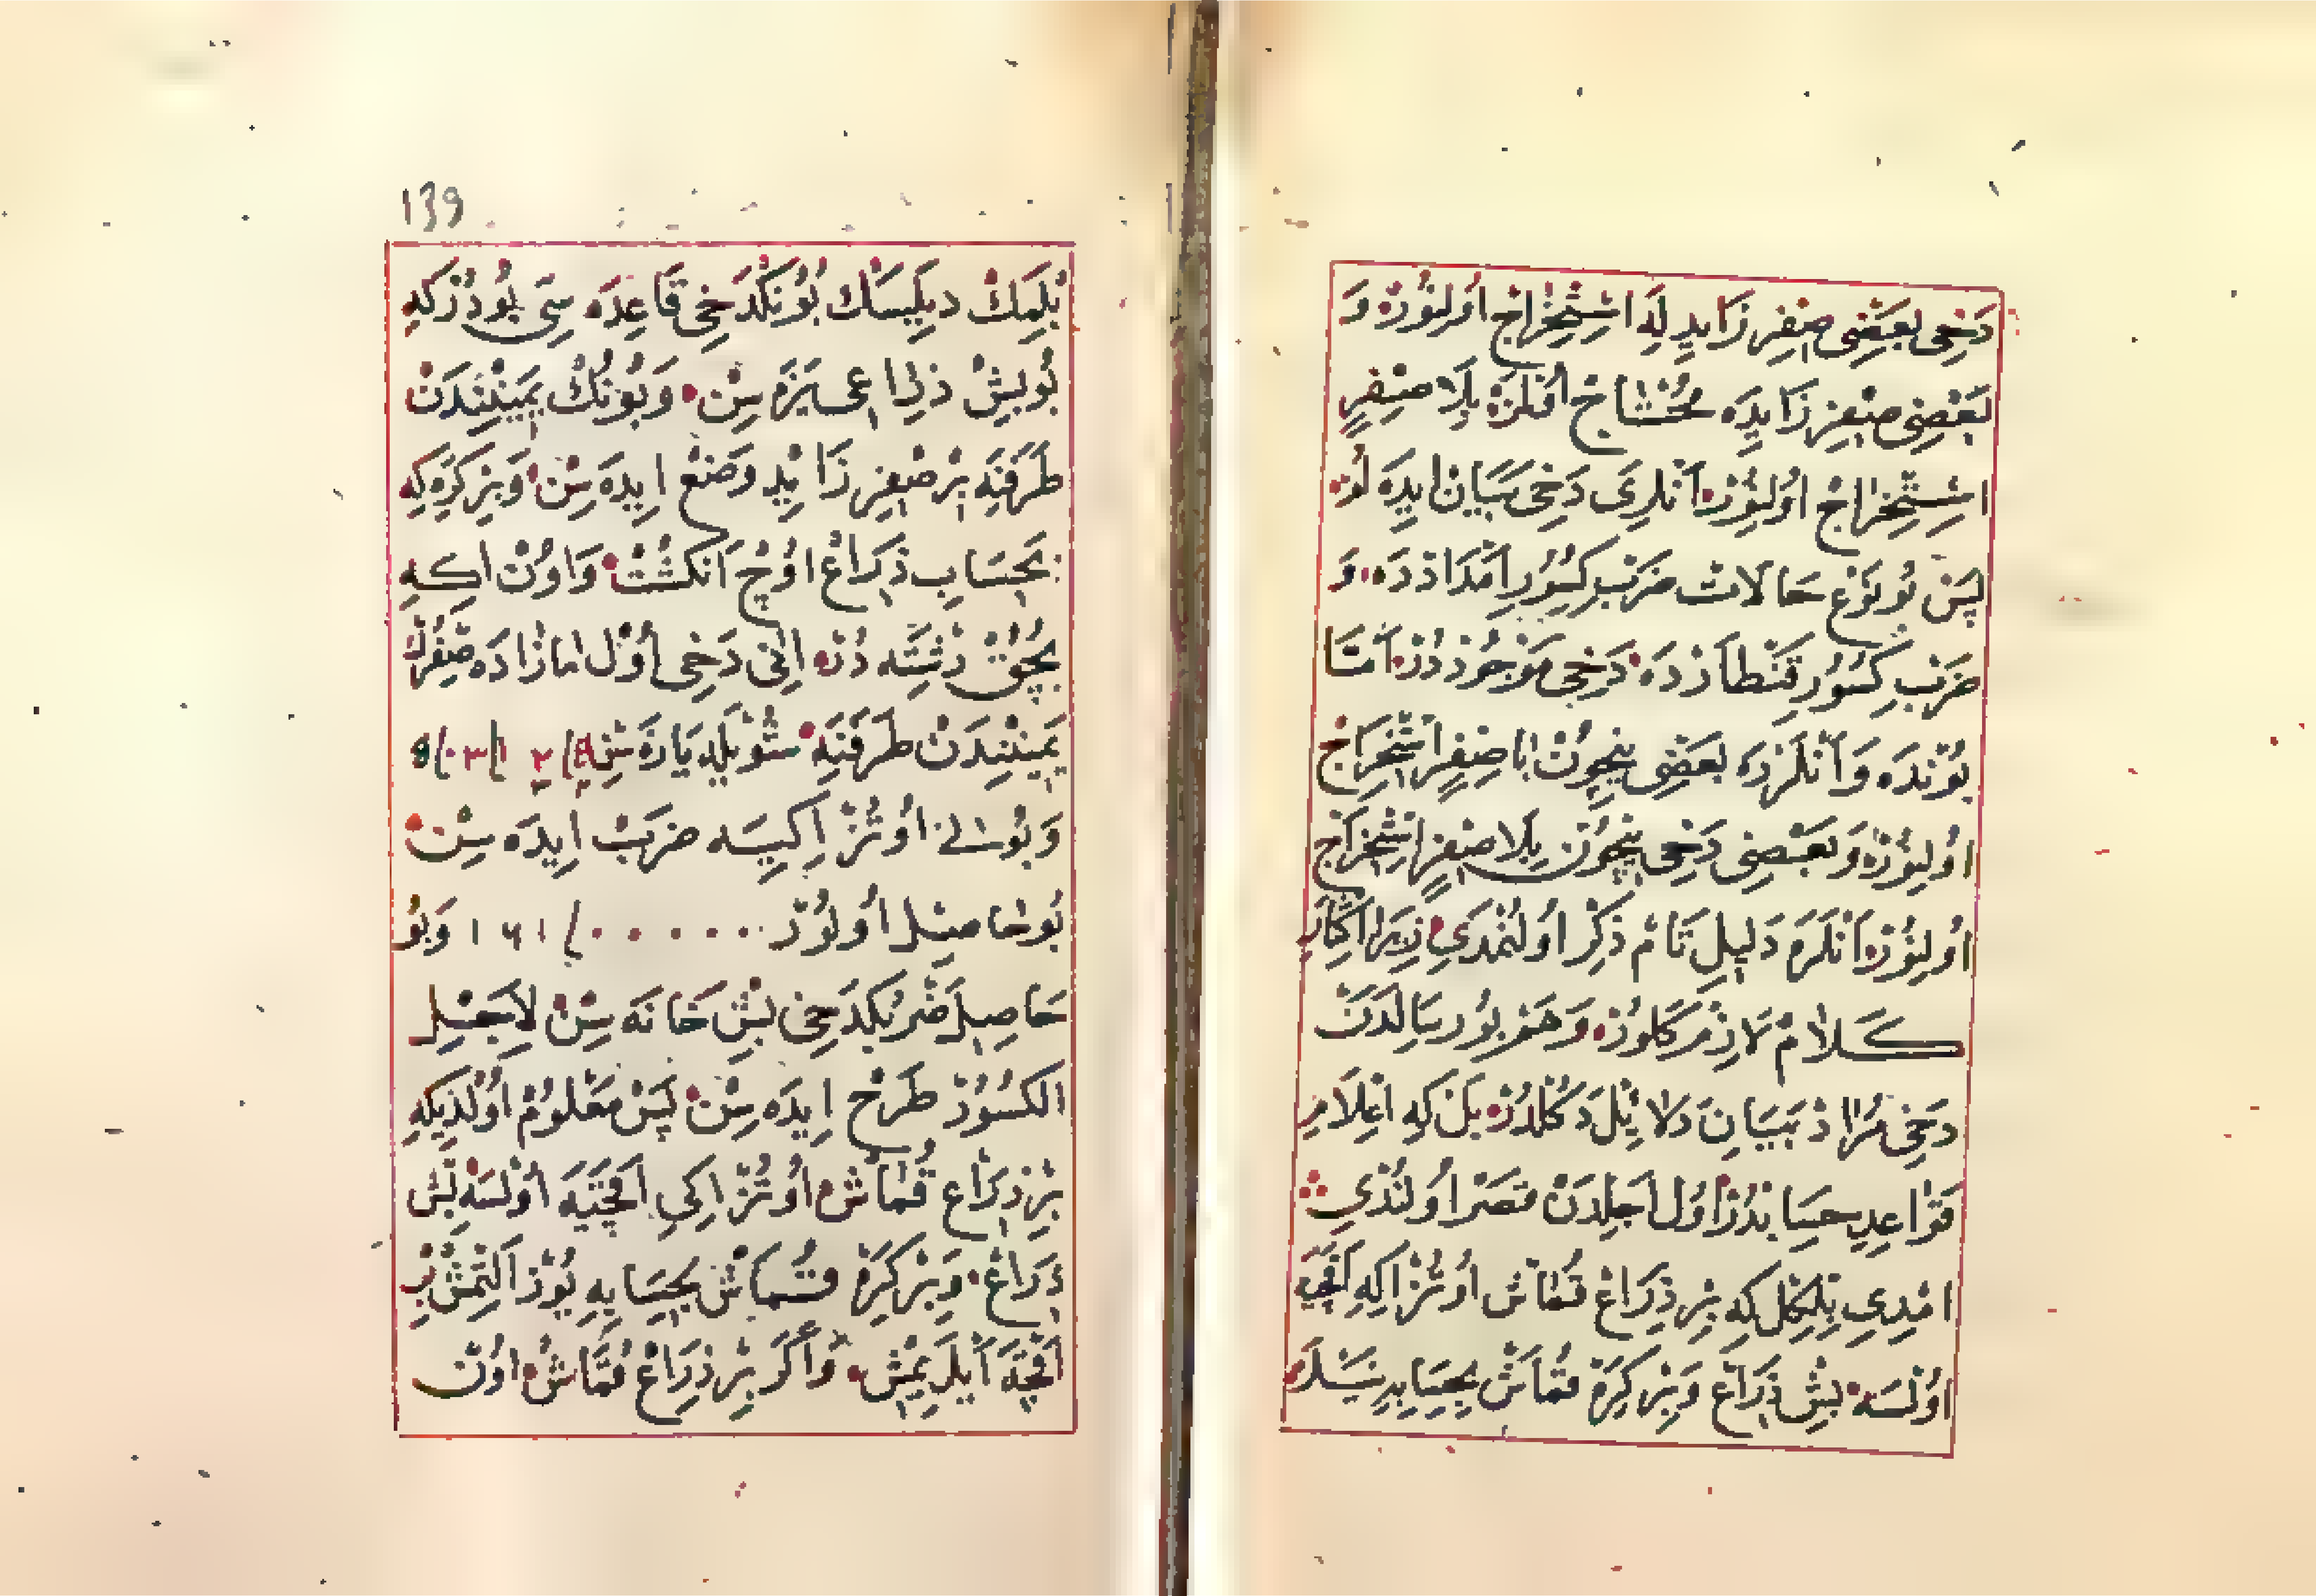 دَخِى بَعْضِى صِفْرِ زَايِدِ لَه اِسْتِخْرَاجْ اُولِنُورْ وَ
بَعْضِى صِفْرِ زَايِدَه مُحْتَاجْ اُولَنْ بِلَا صِفْرٍ
اِسْتِخْرَاجْ اُولِنُورْ اَنْلَرِى دَخِى بَيَانْ ايدَه لُوْ
پَسْ بُو نَوْعْ حَالَاتْ ضَرْبِ كُسُورِ اَمْدَادْدَه وَ
ضَرْبِ كُسُورِ قِنْطَارْدَه دَخِى مَوْجُودْدُرْ اَمَّا
بُونْدَه وَ اَنْلَرْدَه بَعْضِى نِيچُونْ بَا صِفْرٍ اِسْتِخْرَاجْ
اُولِنُورْ وَ بَعْضِى دَخِى نِيچُونْ بِلَا صِفْرٍ اِسْتِخْرَاجْ
اُولِنُورْ اَنْلَرَه دَلِيلِ تَامْ ذِكْرْ اُولِنْمَدِى زِيرَا اِكْثَارِ
كَلَامْ لَازِمْ كَلُورْ وَ هَمْ بُو رِسَالَه‌دَنْ
دَخِى مُرَادْ بَيَانِ دَلَائِلْ دَكُلْدُرْ بَلْ كِه اِعْلَامِ
قَوَاعِدِ حِسَابْدُرْ اُولْ اَجِلْدَنْ قَصْرْ اُولِنْدِى
اِمْدِى بِلْكِلْ كِه بِرْ ذِرَاعْ قُمَاشْ اُوتُزْ اِكِى اَقْچَه
اُولْسَه بِشْ ذِرَاعْ وَ بِرْ كِرَه قُمَاشْ بِحِسَابِه نَيْلَر
139
بُلْمَكْ دِيلَيسَكْ بُونُكْ دَخِى قَاعِدَه سِى بُودُرْكِه
بُو بِشْ ذِرَاعِى يَزَه سِنْ وَ بُونُكْ يَمِينِنْدَنْ
طَرَفَنِه بِرْ صِفْرِ زَايِدْ وَضْعْ اِيدَه سِنْ وَ بِرْ كِرَه كِه
بَحِسَابِ ذِرَاعْ اوُچْ اَنْكُشْتْ وَ اوُنْ اِكِى
بُچُقْ دَشْتَه دُرْ اَنِى دَخِى اُولْ اَمَارَادَه صِفْرِكْ
يَمِينِنْدَنْ طَرَفَنِه شُويلَه يَازَه سِنْ
وَ بُوسَنِى اُوتُزْ اِكِييَه ضَرْبْ اِيدَه سِنْ
بُو حَاصِلْ اُولُورْ ٠٠٠٠٠٠ / ١٦١ وَ بُو
حَاصِلِ ضَرْبُكْ دَخِى بِشْ خَانَه سِنْ لِاَجْلِ
الكُسُورْ طَرْحْ اِيدَه سِنْ پَسْ مَعْلُومْ اُولْدِيكِه
بِرْ ذِرَاعْ قُمَاشْ اُوتُزْ اِكِى اَقْچَيَه اُولْسَه بِشْ
ذِرَاعْ وَ بِرْ كِرَه قُمَاشْ بِحِسَابِه يُوزْ اَلْتْمِشْ بِرْ
اَقْچَه اَيْلَيمِشْ وَ اَكَرْ بِرْ ذِرَاعْ قُمَاشْ اوُنْ